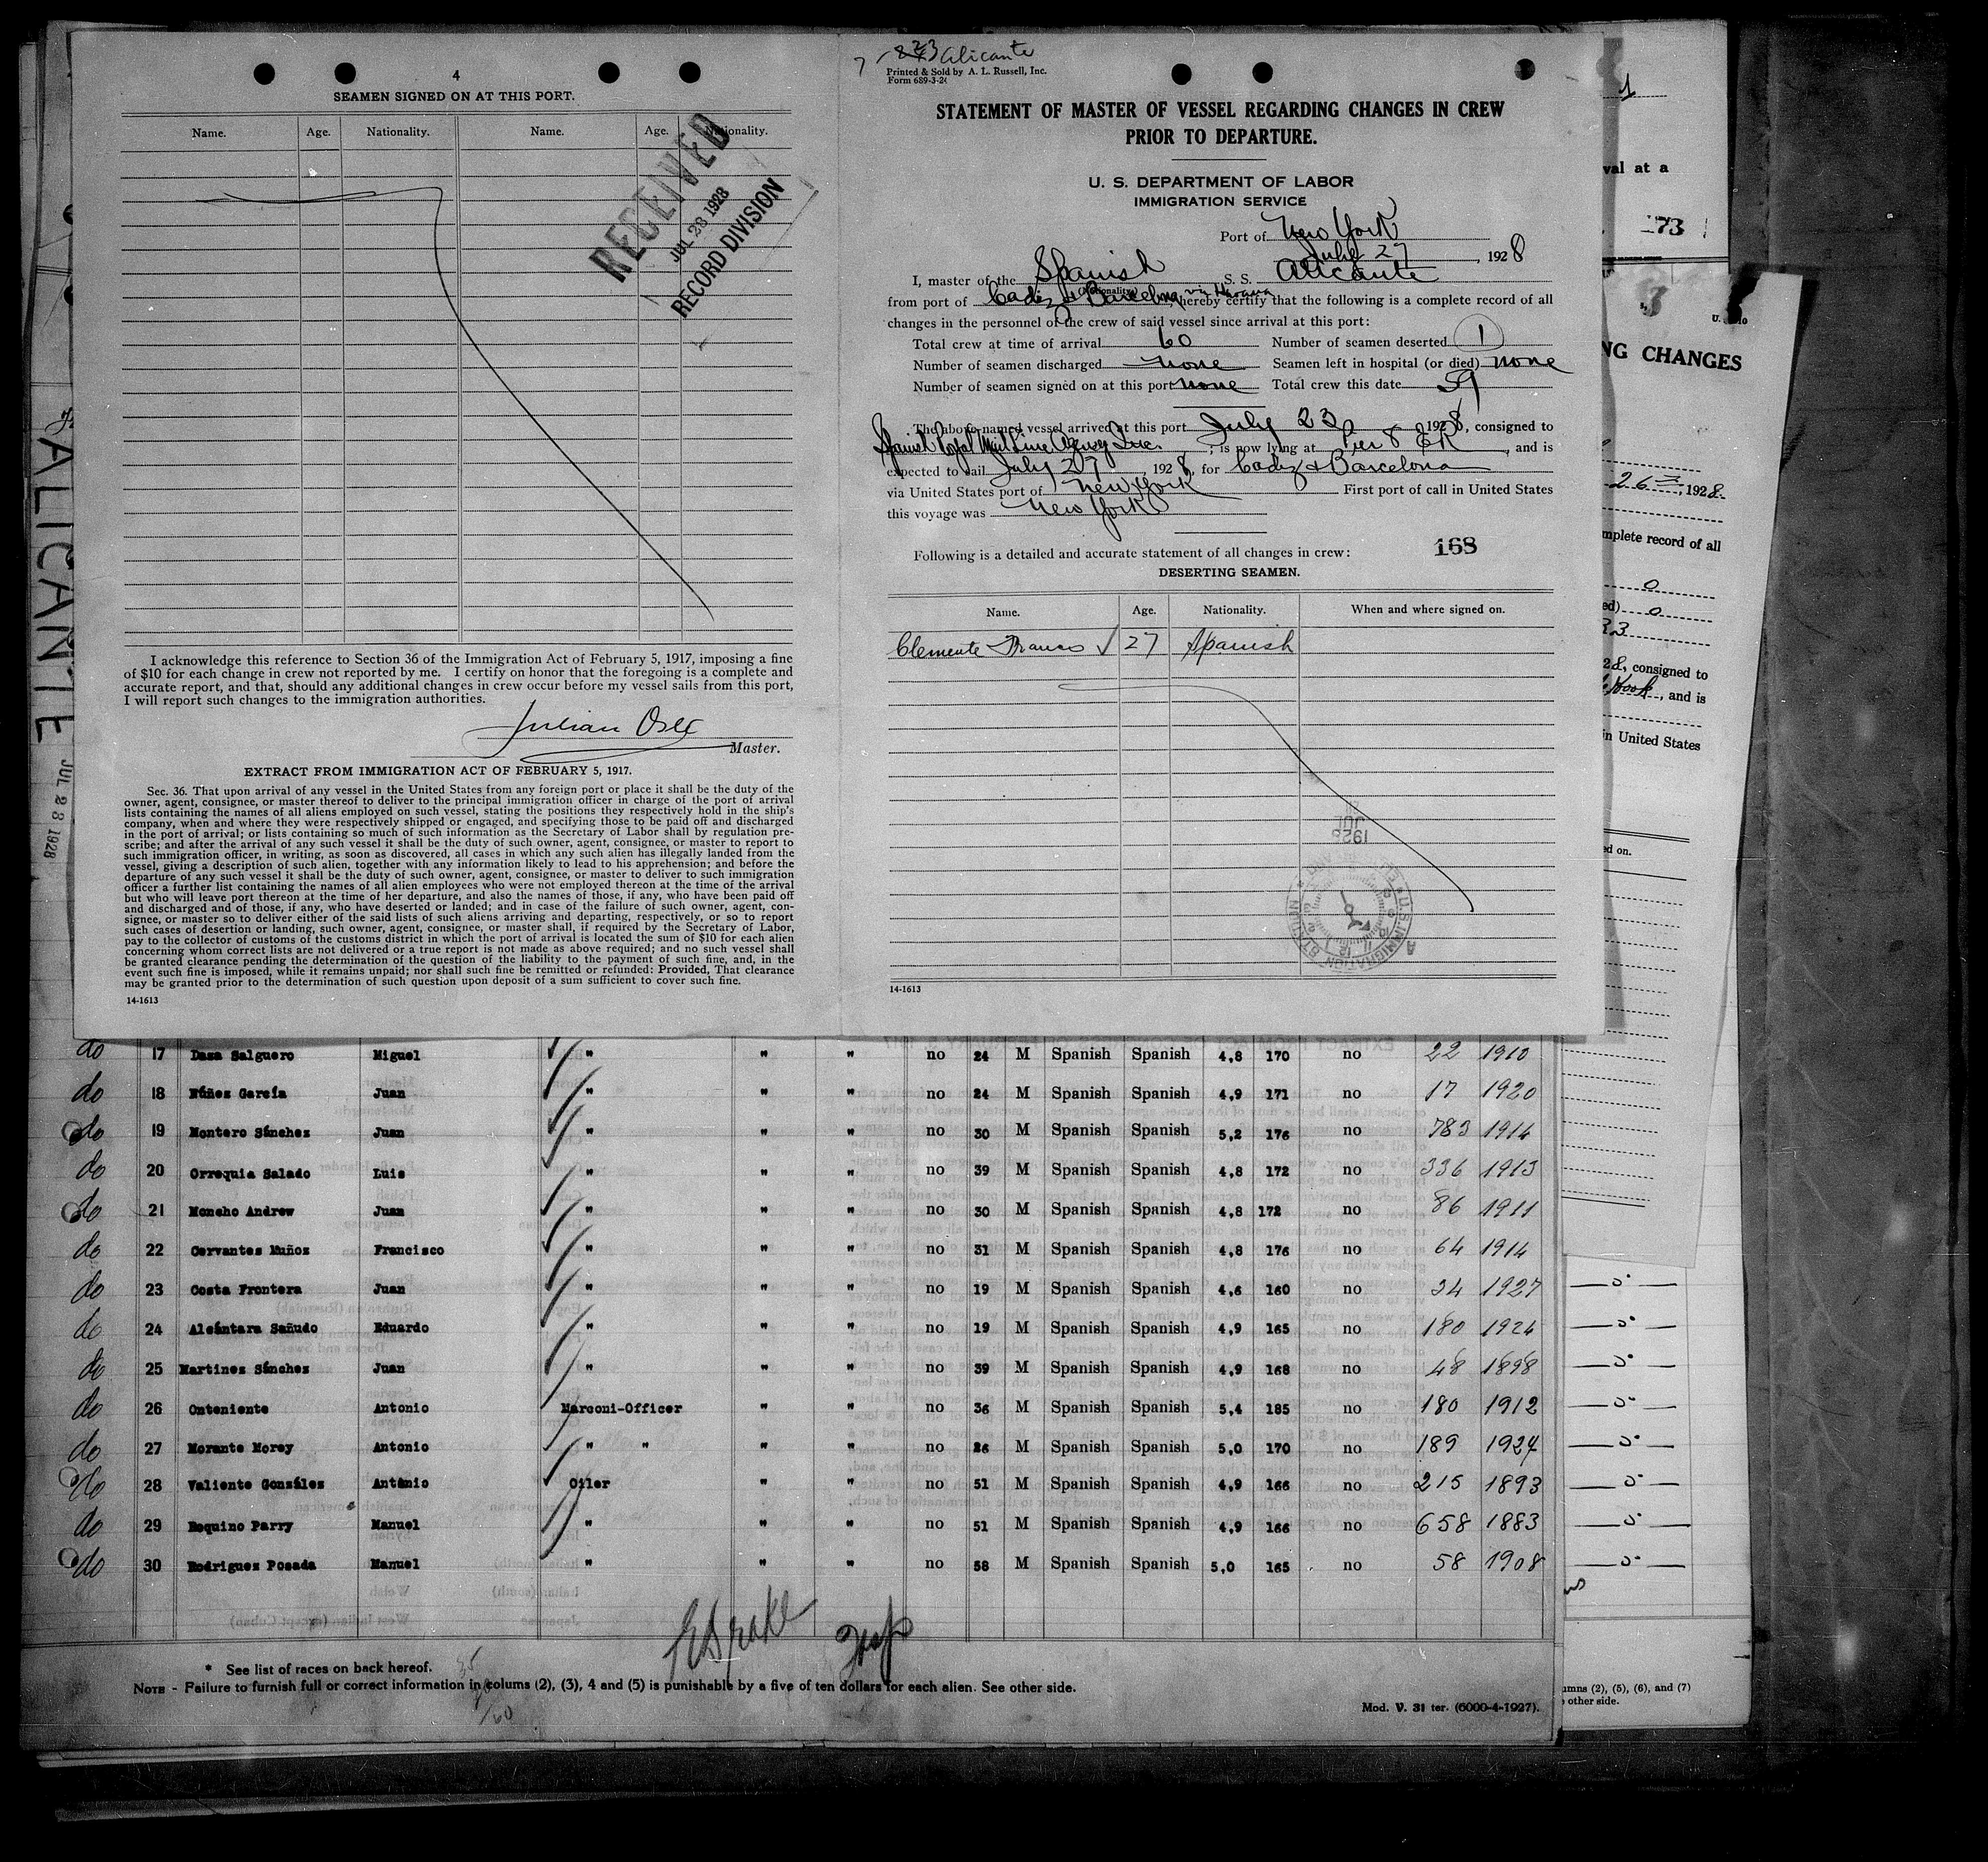 4
SEAMEN SIGNED ON AT THIS PORT.
Name. Age. Nationality. Name. Age. Nationality.
RECEIVED
JUL 28 1928
RECORD DIVISION
I acknowledge this reference to Section 36 of the Immigration Act of February 5, 1917, imposing a fine
of $10 for each change in crew not reported by me. I certify on honor that the foregoing is a complete and
accurate report, and that, should any additional changes in crew occur before my vessel sails from this port,
I will report such changes to the immigration authorities.
Julian
Master.
EXTRACT FROM IMMIGRATION ACT OF FEBRUARY 5, 1917.
Sec. 36. That upon arrival of any vessel in the United States from any foreign port or place it shall be the duty of the
owner, agent, consignee, or master thereof to deliver to the principal immigration officer in charge of the port of arrival
lists containing the names of all aliens employed on such vessel, stating the positions they respectively hold in the ship's
company, when and where they were respectively shipped or engaged, and specifying those to be paid off and discharged
in the port of arrival; or lists containing so much of such information as the Secretary of Labor shall by regulation pre-
scribe; and after the arrival of any such vessel it shall be the duty of such owner, agent, consignee, or master to report to
such immigration officer, in writing, as soon as discovered, all cases in which any such alien has illegally landed from the
vessel, giving a description of such alien, together with any information likely to lead to his apprehension; and before the
departure of any such vessel it shall be the duty of such owner, agent, consignee, or master to deliver to such immigration
officer a further list containing the names of all alien employees who were not employed thereon at the time of the arrival
but who will leave port thereon at the time of her departure, and also the names of those, if any, who have been paid off
and discharged and of those, if any, who have deserted or landed; and in case of the failure of such owner, agent, con-
signee, or master so to deliver either of the said lists of such aliens arriving and departing, respectively, or so to report
such cases of desertion or landing, such owner, agent, consignee, or master shall, if required by the Secretary of Labor,
pay to the collector of customs of the customs district in which the port of arrival is located the sum of $10 for each alien
concerning whom correct lists are not delivered or a true report is not made as above required; and no such vessel shall
be granted clearance pending the determination of the question of the liability to the payment of such fine, and, in the
event such fine is imposed, while it remains unpaid; nor shall such fine be remitted or refunded: Provided, That clearance
may be granted prior to the determination of such question upon deposit of a sum sufficient to cover such fine.
14-1613
ALICANTE JUL 28 1928
Alicante
Printed & Sold by A. L. Russell, Inc.
Form 689-3-26
STATEMENT OF MASTER OF VESSEL REGARDING CHANGES IN CREW
PRIOR TO DEPARTURE.
U. S. DEPARTMENT OF LABOR
IMMIGRATION SERVICE
Port of New York
July 27, 1928
I, master of the Spanish S. S. Alicante
(Nationality)
from port of Cadiz & Barcelona via Havana hereby certify that the following is a complete record of all
changes in the personnel of the crew of said vessel since arrival at this port:
Total crew at time of arrival 60 Number of seamen deserted 1
Number of seamen discharged none Seamen left in hospital (or died) none
Number of seamen signed on at this port none Total crew this date 59
The above-named vessel arrived at this port July 23 1928, consigned to
Spanish Royal Mail Line Agency Inc., is now lying at Pier 8 ER, and is
expected to sail July 27, 1928, for Cadiz & Barcelona
via United States port of New York First port of call in United States
this voyage was New York
Following is a detailed and accurate statement of all changes in crew: 168
DESERTING SEAMEN.
Name. Age. Nationality. When and where signed on.
Clemente Franco ✓ 27 Spanish
14-1613
do 17 Daza Salguero Miguel " " " no 24 M Spanish Spanish 4,8 170 no 22 1910
do 18 Núñez García Juan " " " no 24 M Spanish Spanish 4,9 171 no 17 1920
do 19 Montero Sánchez Juan " " " no 30 M Spanish Spanish 5,2 176 no 783 1914
do 20 Orrequia Salado Luis " " " no 39 M Spanish Spanish 4,8 172 no 336 1913
do 21 Moncho Andrew Juan " " " no 30 M Spanish Spanish 4,8 172 no 86 1911
do 22 Cervantes Muñoz Francisco " " " no 31 M Spanish Spanish 4,8 176 no 64 1914
do 23 Costa Frontera Juan " " " no 19 M Spanish Spanish 4,6 160 no 34 1927
do 24 Alcántara Sañudo Eduardo " " " no 19 M Spanish Spanish 4,9 165 no 180 1924
do 25 Martinez Sánchez Juan " " " no 39 M Spanish Spanish 4,9 168 no 48 1898
do 26 Onteniente Antonio Marconi-Officer " " no 36 M Spanish Spanish 5,4 185 no 180 1912
do 27 Morante Morey Antonio " " " " no 26 M Spanish Spanish 5,0 170 no 189 1924
do 28 Valiente Gonzáles Antonio Oiler " " no 51 M Spanish Spanish 4,9 166 no 215 1893
do 29 Roquino Parry Manuel " " " no 51 M Spanish Spanish 4,9 166 no 658 1883
do 30 Rodriguez Posada Manuel " " " no 58 M Spanish Spanish 5,0 165 no 58 1908
* See list of races on back hereof.
NOTE - Failure to furnish full or correct information in colums (2), (3), 4 and (5) is punishable by a five of ten dollars for each alien. See other side.
Mod. V. 31 ter. (6000-4-1927).
val at a
73
NG CHANGES
26, 1928.
mplete record of all
0
ed) 0
28, consigned to
Hook, and is
in United States
ed on.
umns (2), (5), (6), and (7)
other side.